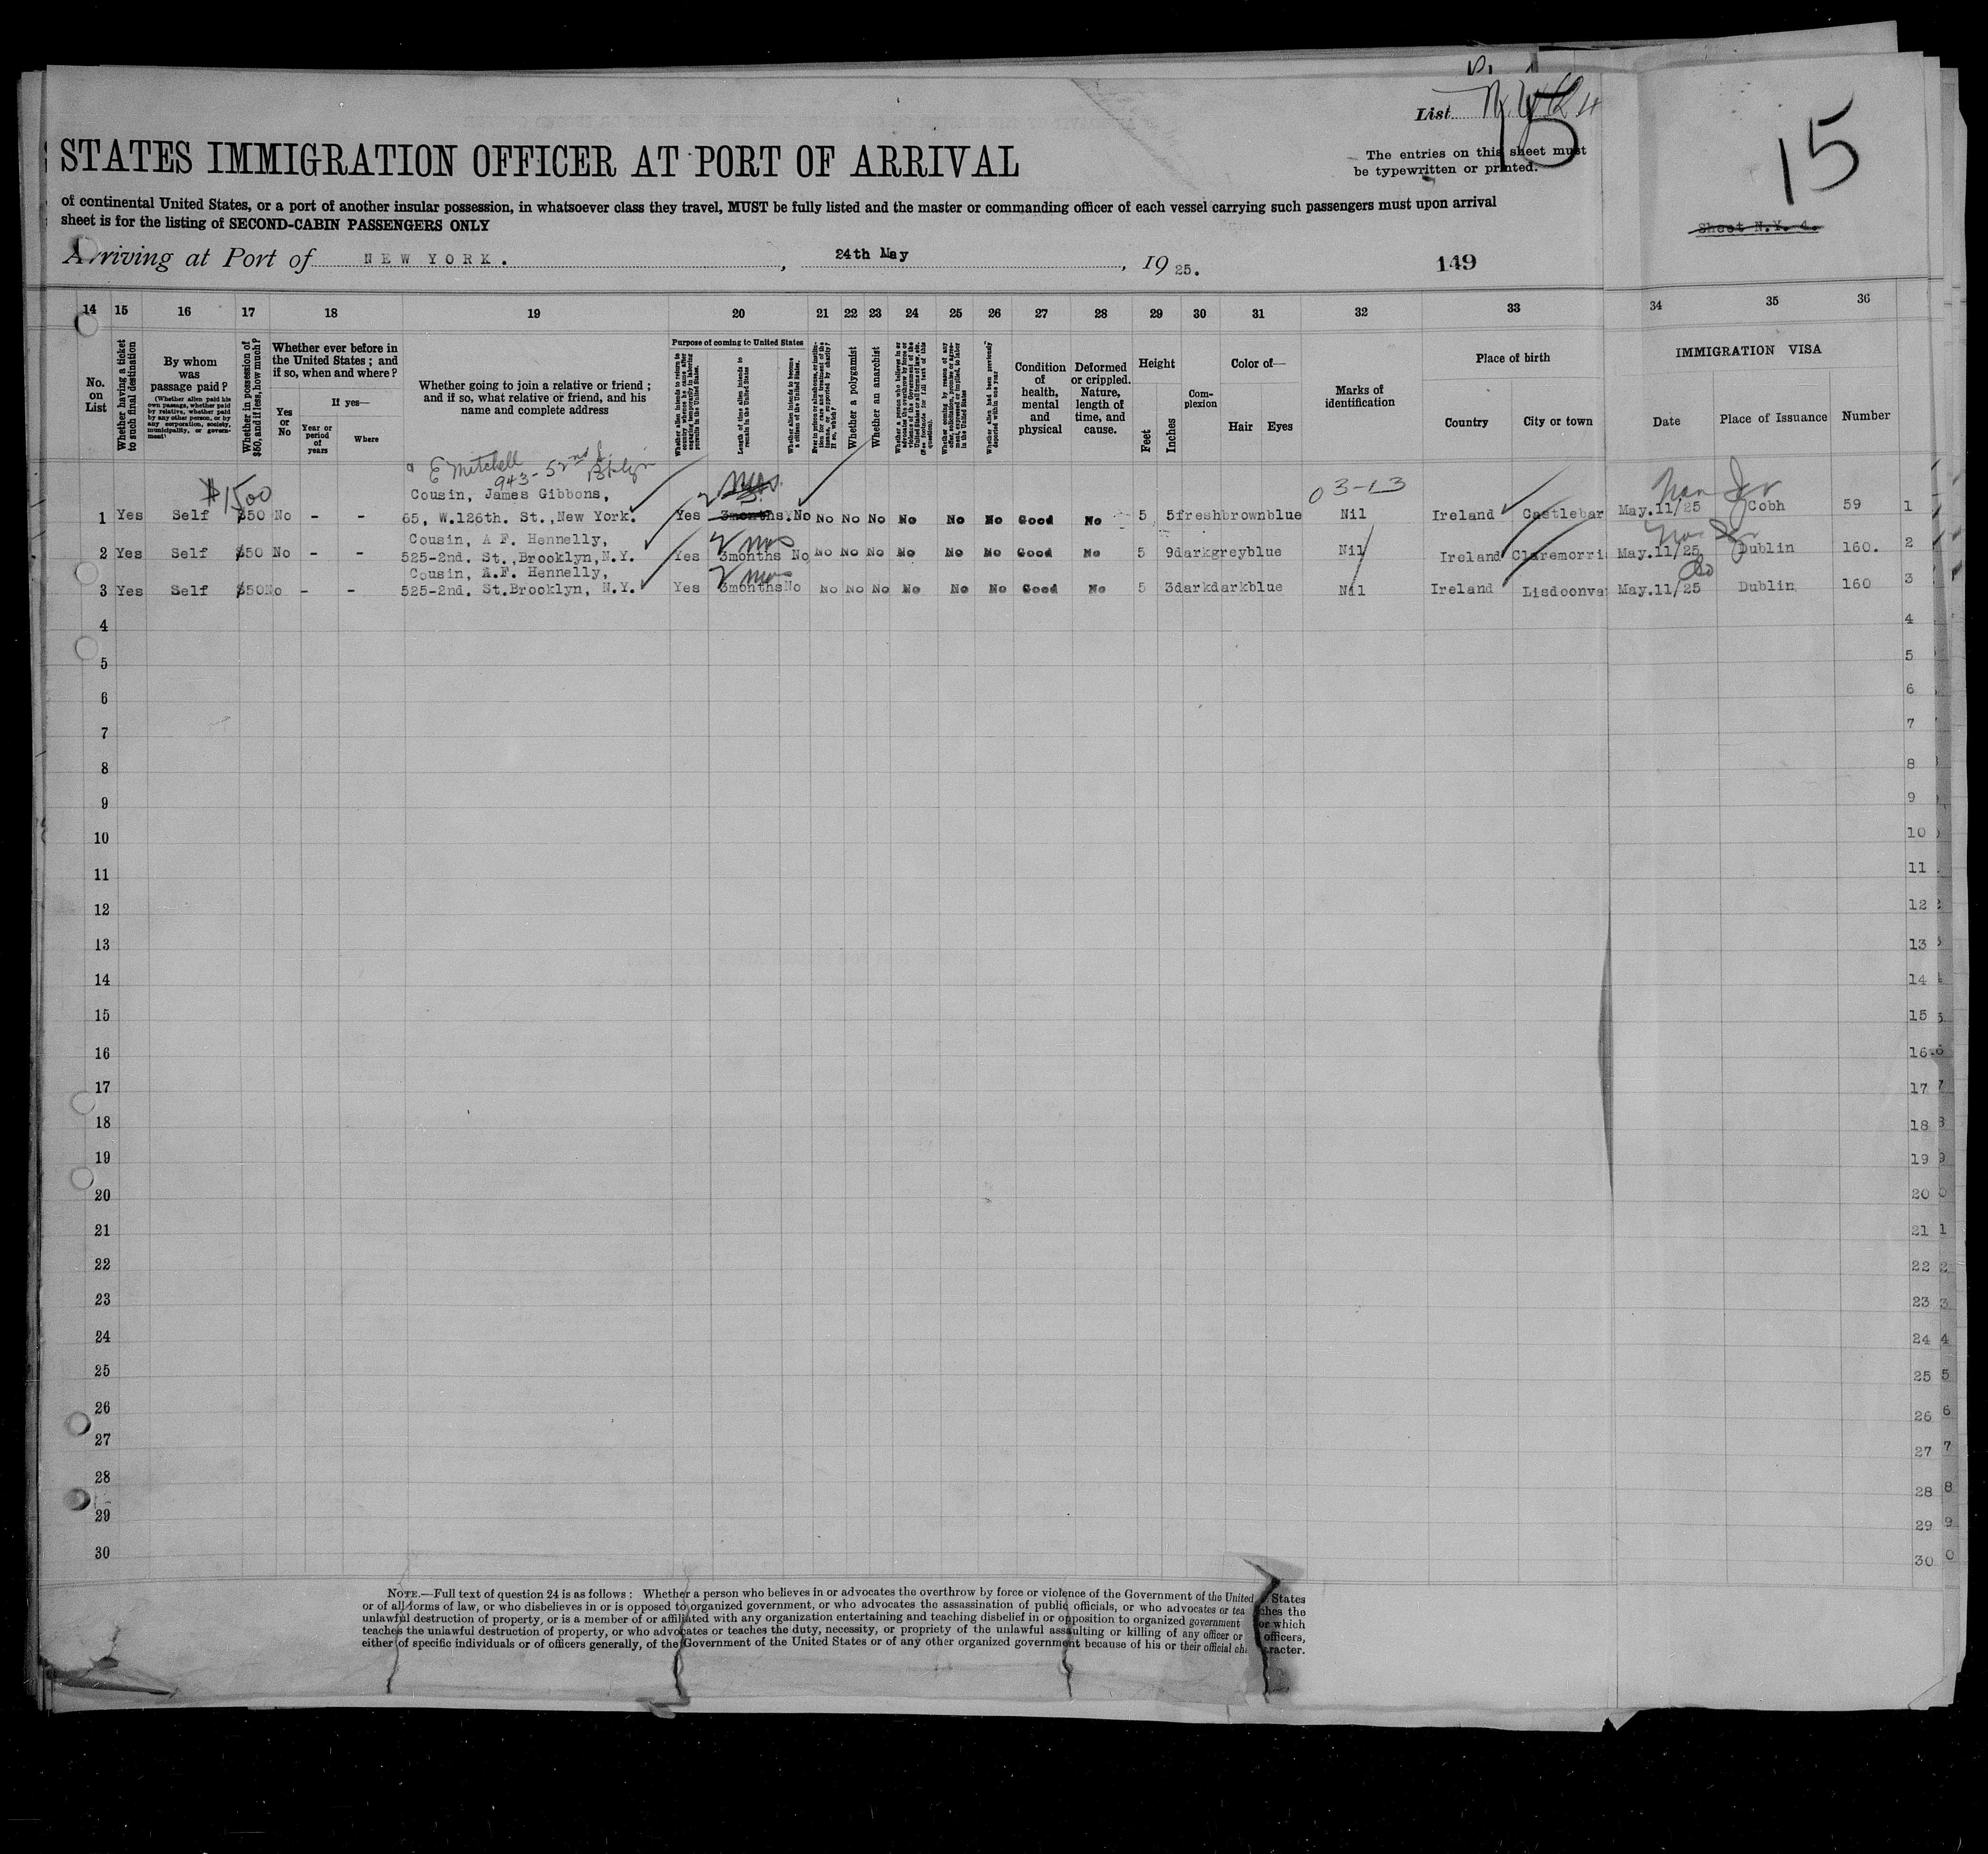 List
15
STATES IMMIGRATION OFFICER AT PORT OF ARRIVAL
The entries on this sheet must
be typewritten or printed.
15
Sheet N.Y. 4.
of continental United States, or a port of another insular possession, in whatsoever class they travel, MUST be fully listed and the master or commanding officer of each vessel carrying such passengers must upon arrival
sheet is for the listing of SECOND-CABIN PASSENGERS ONLY
Arriving at Port of NEW YORK. , 24th May , 19 25.
149
14 15 16 17 18 19 20 21 22 23 24 25 26 27 28 29 30 31 32 33 34 35 36
No. on List
Whether having a ticket to such final destination
By whom was passage paid?
(Whether alien paid his own passage, whether paid by relative, whether paid by any other person, or by any corporation, society, municipality, or government)
Whether in possession of $50, and if less, how much?
Whether ever before in the United States; and if so, when and where?
Yes or No
If yes—
Year or period of years
Where
Whether going to join a relative or friend; and if so, what relative or friend, and his name and complete address
Purpose of coming to United States
Length of time alien intends to remain in the United States
Whether alien intends to become a citizen of the United States.
Whether a polygamist
Whether an anarchist
Whether alien had been previously deported within one year
Condition of health, mental and physical
Deformed or crippled. Nature, length of time, and cause.
Height
Feet
Inches
Complexion
Color of—
Hair
Eyes
Marks of identification
Place of birth
Country
City or town
IMMIGRATION VISA
Date
Place of Issuance
Number
E Mitchell
943 - 52nd St. Bklyn
$1500
Cousin, James Gibbons,
03-13
1 Yes Self $50 No - - 65, W.126th. St.,New York. Yes 3months. No No No No No No No Good No 5 5 fresh brown blue Nil Ireland Castlebar May.11/25 Cobh 59 1
Cousin, A F. Hennelly,
2 mos
2 Yes Self $50 No - - 525-2nd. St.,Brooklyn,N.Y. Yes 3months No No No No No No No Good No 5 9 dark grey blue Nil Ireland Claremorri May.11/25 Dublin 160. 2
Cousin, A.F. Hennelly,
2 mos
3 Yes Self $50 No - - 525-2nd. St.Brooklyn, N.Y. Yes 3months No No No No No No No Good No 5 3 dark dark blue Nil Ireland Lisdoonva May.11/25 Dublin 160 3
4 4
5 5
6 6
7 7
8 8
9 9
10 10
11 11
12 12
13 13
14 14
15 15
16 16
17 17
18 18
19 19
20 20
21 21
22 22
23 23
24 24
25 25
26 26
27 27
28 28
29 29
30 30
NOTE.—Full text of question 24 is as follows: Whether a person who believes in or advocates the overthrow by force or violence of the Government of the United States
or of all forms of law, or who disbelieves in or is opposed to organized government, or who advocates the assassination of public officials, or who advocates or teaches the
unlawful destruction of property, or is a member of or affiliated with any organization entertaining and teaching disbelief in or opposition to organized government or which
teaches the unlawful destruction of property, or who advocates or teaches the duty, necessity, or propriety of the unlawful assaulting or killing of any officer or officers,
either of specific individuals or of officers generally, of the Government of the United States or of any other organized government because of his or their official character.